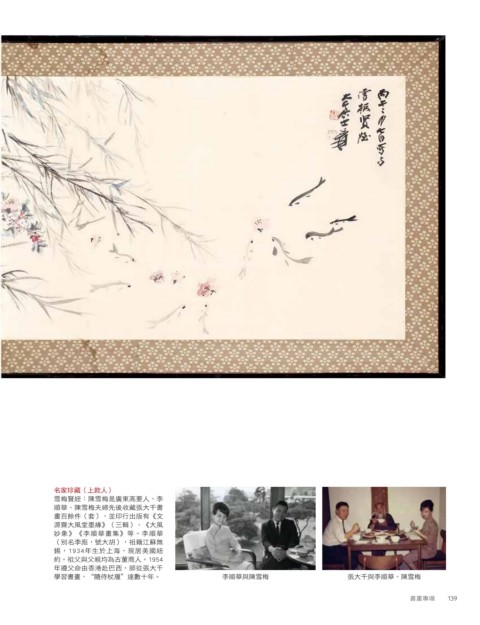 名家珍藏（上款人）
雪梅賢姪：陳雪梅是廣東高要人。李
順華、陳雪梅夫婦先後收藏張大千書
畫百餘件（套），並印行出版有《文
源齋大風堂墨緣》（三輯）、《大風
妙象》《李順華畫集》等。李順華
（別名李彪，號大胡），祖籍江蘇無
錫，1934年生於上海，現居美國紐
約。祖父與父親均為古董商人。1954
年遵父命由香港赴巴西，師從張大千
學習書畫，“隨侍杖履”達數十年。
李順華與陳雪梅
張大千與李順華、陳雪梅
書畫專場 139